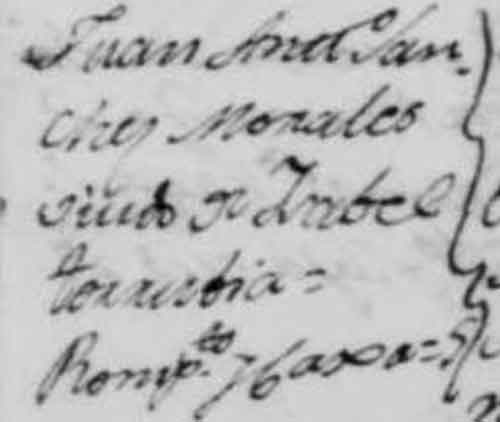 Juan Andº San-
chez Morales
viudo de Izabel
torrestia=
Romp.to